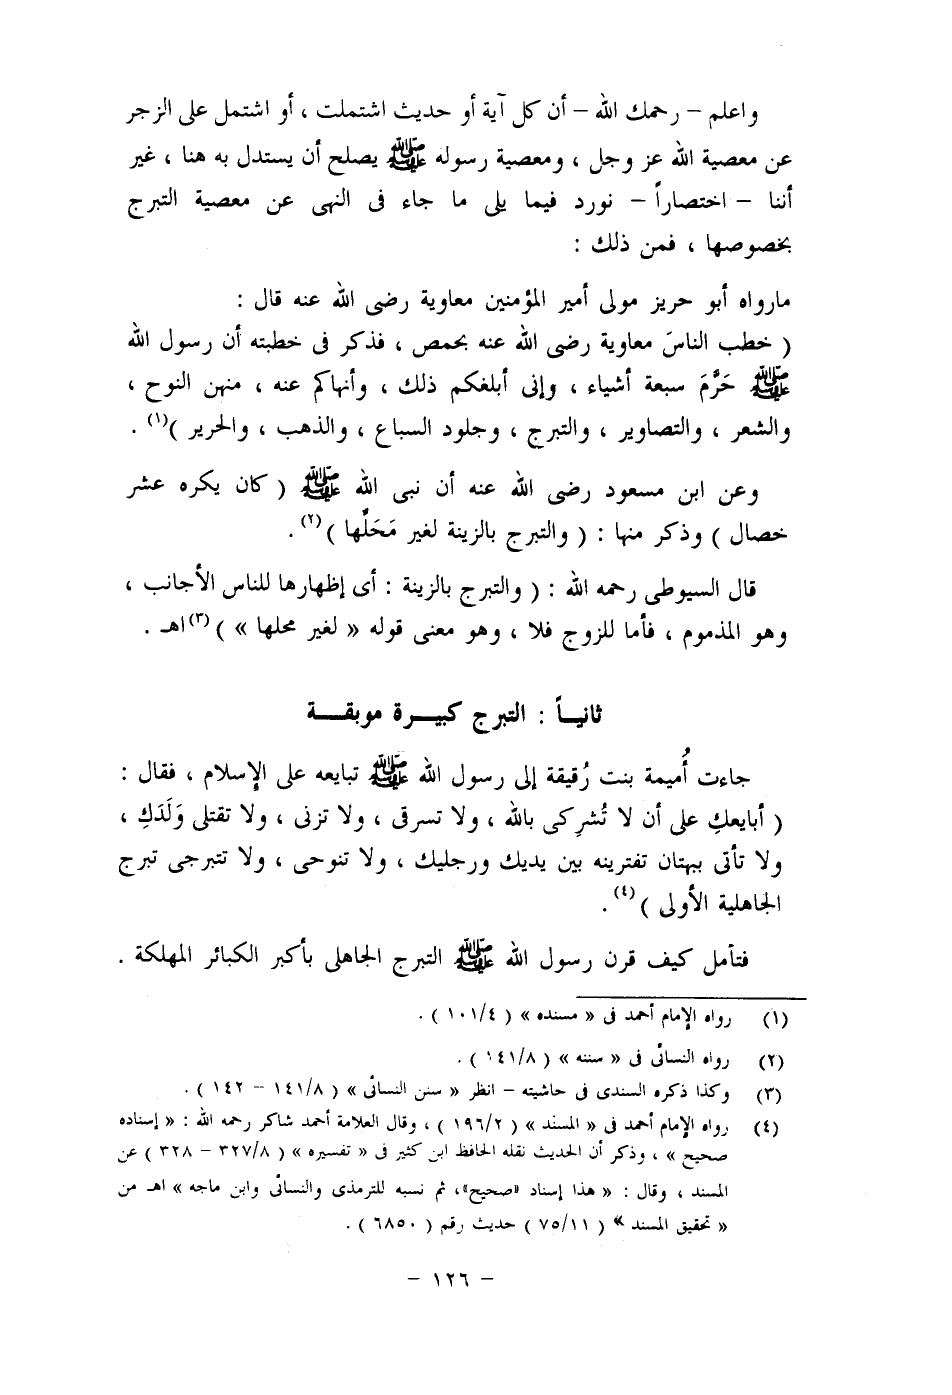 واعلم – رحمك الله – أن كل آية أو حديث اشتملت ، أو اشتمل على الزجر
عن معصية الله عز وجل ، ومعصية رسوله ﷺ يصلح أن يستدل به هنا ، غير
أننا – اختصاراً – نورد فيما يلى ما جاء فى النهى عن معصية التبرج
بخصوصها ، فمن ذلك :
مارواه أبو حريز مولى أمير المؤمنين معاوية رضى الله عنه قال :
( خطب الناسَ معاوية رضى الله عنه بحمص ، فذكر فى خطبته أن رسول الله
ﷺ حَرَّمَ سبعة أشياء ، وإنى أبلغكم ذلك ، وأنهاكم عنه ، منهن النوح ،
والشعر ، والتصاوير ، والتبرج ، وجلود السباع ، والذهب ، والحرير )(١) .
وعن ابن مسعود رضى الله عنه أن نبى الله ﷺ ( كان يكره عشر
خصال ) وذكر منها : ( والتبرج بالزينة لغير مَحَلِّها )(٢) .
قال السيوطى رحمه الله : ( والتبرج بالزينة : أى إظهارها للناس الأجانب ،
وهو المذموم ، فأما للزوج فلا ، وهو معنى قوله « لغير محلها » )(٣)اهـ .
ثانيـاً : التبرج كبيـرة موبقـة
جاءت أُميمة بنت رُقيقة إلى رسول الله ﷺ تبايعه على الإسلام ، فقال :
( أبايعكِ على أن لا تُشرِكى بالله ، ولا تسرقى ، ولا تزنى ، ولا تقتلى وَلَدَكِ ،
ولا تأتى ببهتان تفترينه بين يديك ورجليك ، ولا تنوحى ، ولا تتبرجى تبرج
الجاهلية الأولى )(٤) .
فتأمل كيف قرن رسول الله ﷺ التبرج الجاهلى بأكبر الكبائر المهلكة .
(١) رواه الإمام أحمد فى « مسنده » ( ١٠١/٤ ) .
(٢) رواه النسائى فى « سننه » ( ١٤١/٨ ) .
(٣) وكذا ذكره السندى فى حاشيته – انظر « سنن النسائى » ( ١٤١/٨ – ١٤٢ ) .
(٤) رواه الإمام أحمد فى « المسند » ( ١٩٦/٢ ) ، وقال العلامة أحمد شاكر رحمه الله : « إسناده
صحيح » ، وذكر أن الحديث نقله الحافظ ابن كثير فى « تفسيره » ( ٣٢٧/٨ – ٣٢٨ ) عن
المسند ، وقال : « هذا إسناد "صحيح"، ثم نسبه للترمذى والنسائى وابن ماجه » اهـ من
« تحقيق المسند » ( ٧٥/١١ ) حديث رقم ( ٦٨٥٠ ) .
– ١٢٦ –